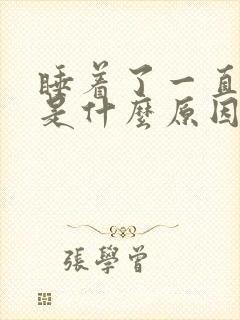 睡着了一直
是什麼原因
張學曾